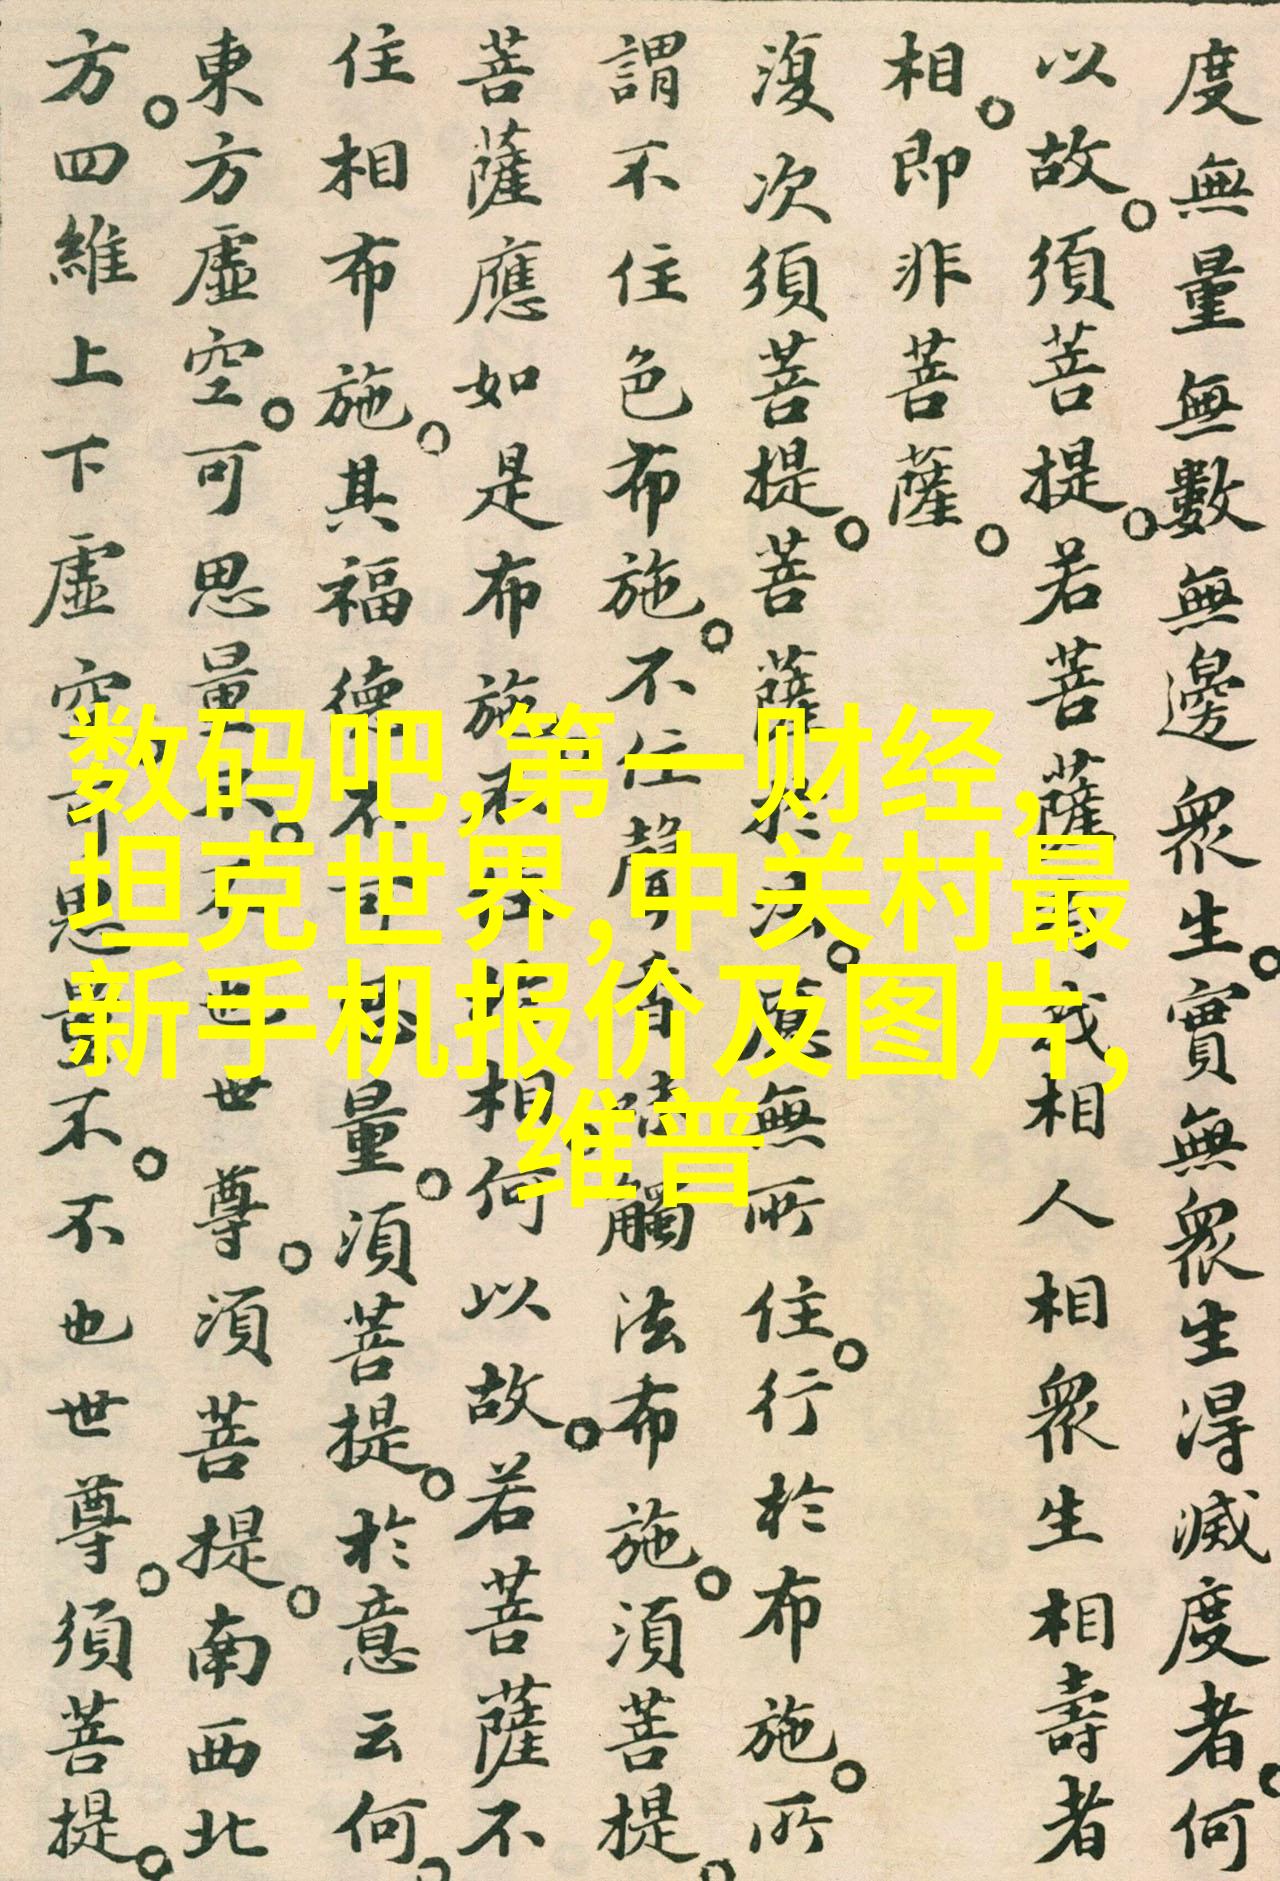 度無量無數無邊衆生。實無衆生得滅度者。何
以故。須菩提。若菩薩有我相人相衆生相壽者
相。即非菩薩。
復次須菩提。菩薩於法。應無所住。行於布施。所
謂不住色布施。不住聲香味觸法布施。須菩提。
菩薩應如是布施不住於相何以故。若菩薩不
住相布施。其福德不可思量。須菩提。於意云何。
東方虛空。可思量不。不也世尊。須菩提。南西北
方。四維上下虛空可思量不。不也世尊。須菩提。
数码吧,第一财经,
坦克世界,中关村最
新手机报价及图片,
维普